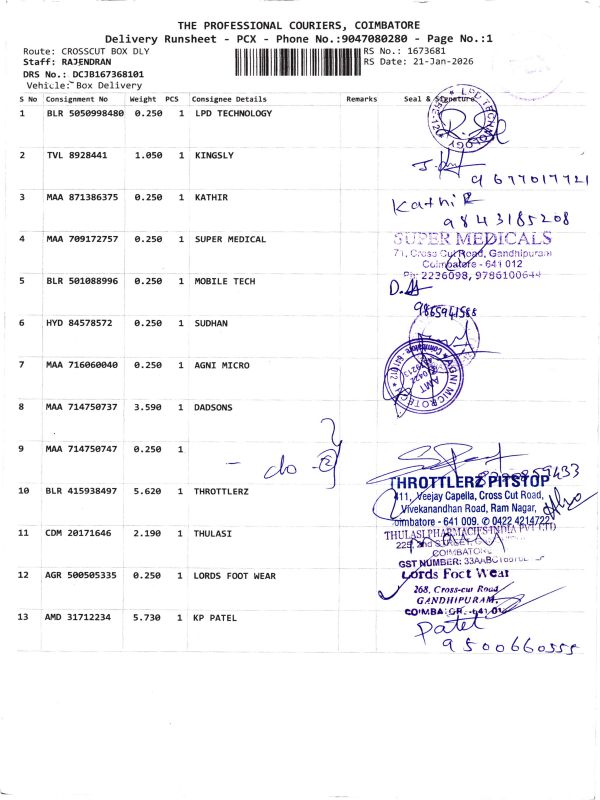 THE PROFESSIONAL COURIERS, COIMBATORE
Delivery Runsheet - PCX - Phone No.:9047080280 - Page No.:1
Route: CROSSCUT BOX DLY RS No.: 1673681
Staff: RAJENDRAN RS Date: 21-Jan-2026
DRS No.: DCJB167368101
Vehicle: Box Delivery
S No Consignment No Weight PCS Consignee Details Remarks Seal & Signature
1 BLR 5050998480 0.250 1 LPD TECHNOLOGY
LPD TECHNOLOGY
2 TVL 8928441 1.050 1 KINGSLY
9677017721
3 MAA 871386375 0.250 1 KATHIR
Kathir
9843185208
4 MAA 709172757 0.250 1 SUPER MEDICAL
SUPER MEDICALS
71, Cross Cut Road, Gandhipuram
Coimbatore - 641 012
Ph: 2236098, 9786100644
5 BLR 501088996 0.250 1 MOBILE TECH
6 HYD 84578572 0.250 1 SUDHAN
7 MAA 716060040 0.250 1 AGNI MICRO
8 MAA 714750737 3.590 1 DADSONS
9 MAA 714750747 0.250 1
- do -
10 BLR 415938497 5.620 1 THROTTLERZ
THROTTLERZ PITSTOP
411, Veejay Capella, Cross Cut Road,
Vivekanandhan Road, Ram Nagar,
Coimbatore - 641 009. ✆ 0422 4214722
11 CDM 20171646 2.190 1 THULASI
THULASI PHARMACIES INDIA PVT LTD
COIMBATORE
GST NUMBER:
12 AGR 500505335 0.250 1 LORDS FOOT WEAR
Lords Foot Wear
268, Cross-cut Road
GANDHIPURAM,
13 AMD 31712234 5.730 1 KP PATEL
Patel
9500660555